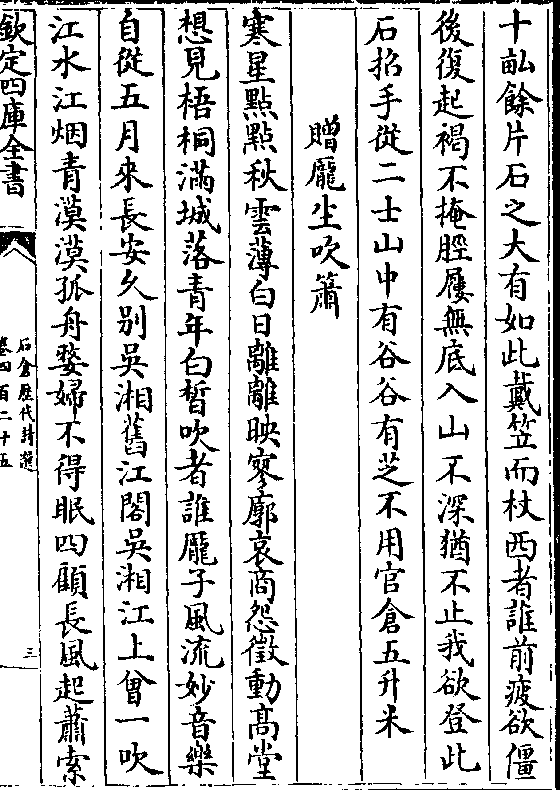 十畝餘片石之大有如此戴笠而杖西者誰前疲欲僵
後復起褐不掩脛屨無底入山不深猶不止我欲登此
石招手從二士山中有谷谷有芝不用官倉五升米
贈龐生吹簫
寒星點點秋雲薄白日離離映寥廓哀商怨徵動高堂
想見梧桐滿城落青年白皙吹者誰龐子風流妙音樂
自從五月來長安久别吳湘舊江閣吳湘江上曾一吹
江水江烟青漠漠孤舟嫠婦不得眠四顧長風起蕭索
欽定四庫全書
石倉歷代詩選
卷四百二十五
三